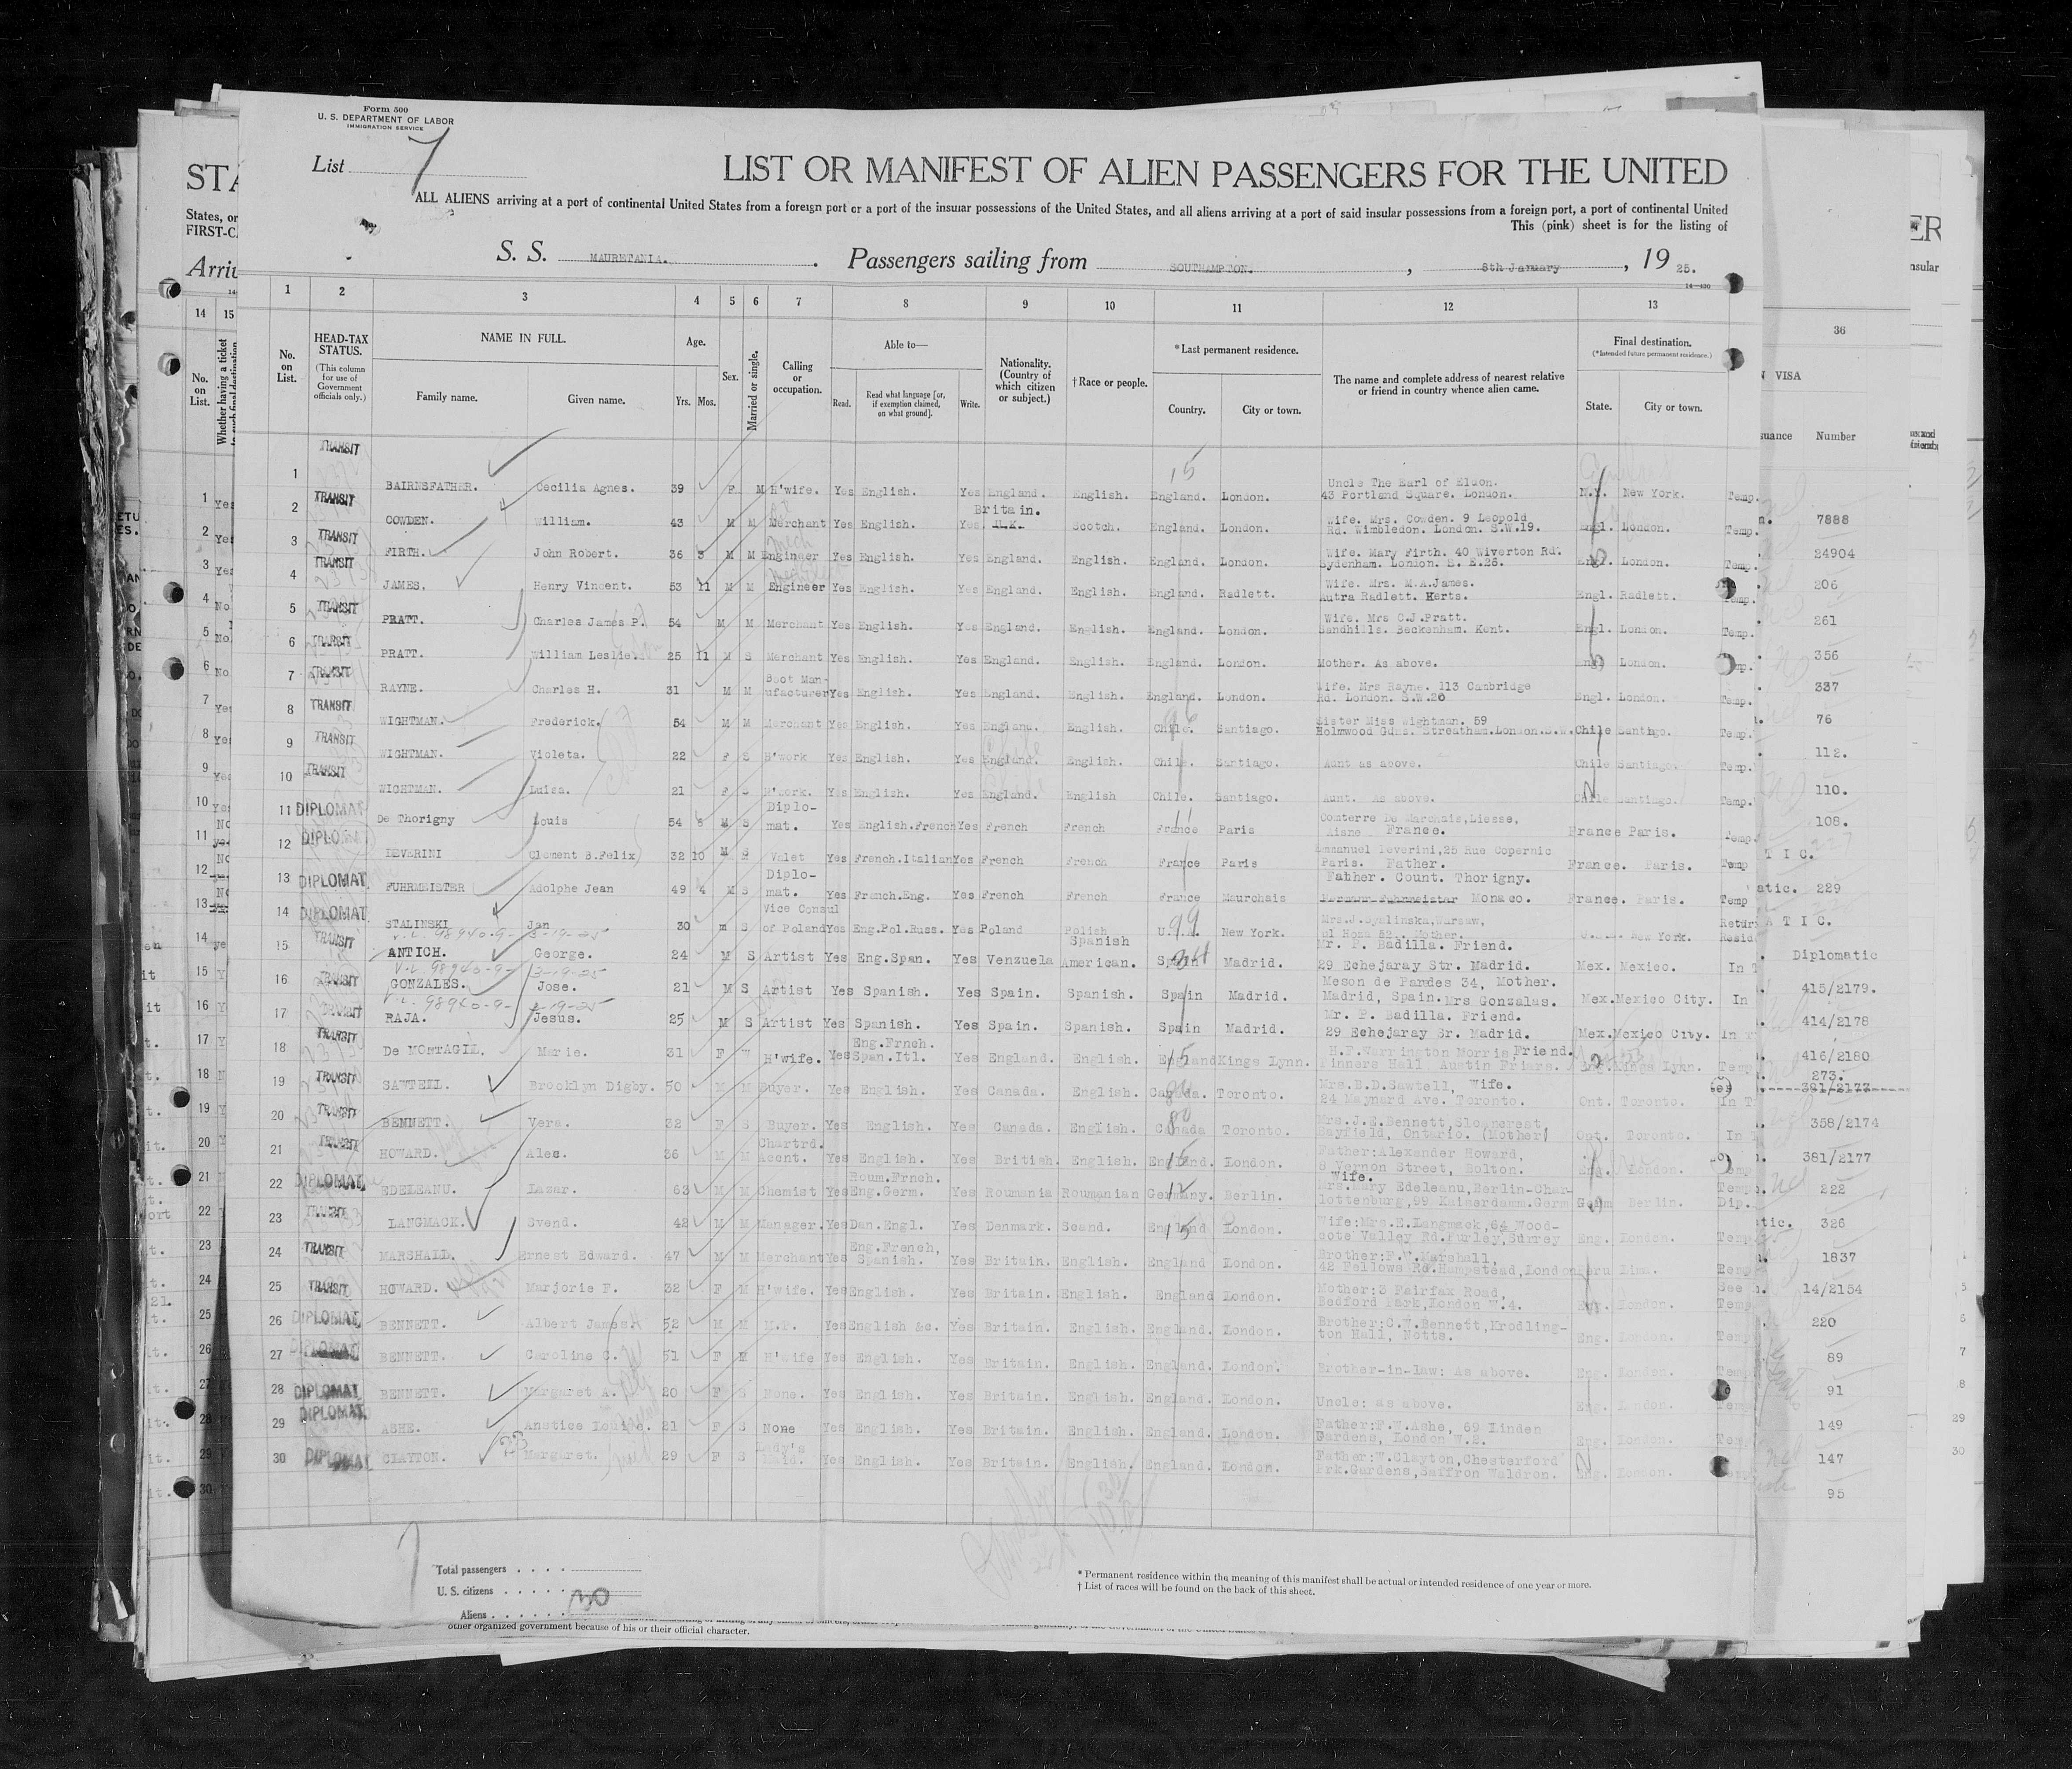 Form 500
U. S. DEPARTMENT OF LABOR
IMMIGRATION SERVICE
List 7
LIST OR MANIFEST OF ALIEN PASSENGERS FOR THE UNITED
ALL ALIENS arriving at a port of continental United States from a foreign port or a port of the insular possessions of the United States, and all aliens arriving at a port of said insular possessions from a foreign port, a port of continental United
This (pink) sheet is for the listing of
S. S. MAURETANIA. Passengers sailing from SOUTHAMPTON. , 8th January , 19 25.
1 2 3 4 5 6 7 8 9 10 11 12 13
No. on List.
HEAD-TAX STATUS.
(This column for use of Government officials only.)
NAME IN FULL.
Family name. Given name.
Age.
Yrs. Mos.
Sex.
Married or single.
Calling or occupation.
Able to—
Read. Read what language [or, if exemption claimed, on what ground]. Write.
Nationality. (Country of which citizen or subject.)
†Race or people.
*Last permanent residence.
Country. City or town.
The name and complete address of nearest relative or friend in country whence alien came.
Final destination.
(*Intended future permanent residence.)
State. City or town.
1 TRANSIT BAIRNSFATHER. Cecilia Agnes. 39 F M H'wife. Yes English. Yes England. English. England. London. Uncle The Earl of Eldon. 43 Portland Square. London. N.Y. New York. Temp.
2 TRANSIT COWDEN. William. 43 M M Merchant Yes English. Yes Britain. Scotch. England. London. Wife. Mrs. Cowden. 9 Leopold Rd. Wimbledon. London. S.W.19. Engl. London. Temp.
3 TRANSIT FIRTH. John Robert. 36 3 M M Engineer Yes English. Yes England. English. England. London. Wife. Mary Firth. 40 Wiverton Rd. Sydenham. London. S. E.26. Engl. London. Temp.
4 TRANSIT JAMES. Henry Vincent. 53 11 M M Engineer Yes English. Yes England. English. England. Radlett. Wife. Mrs. M.A.James. Autra Radlett. Herts. Engl. Radlett. Temp.
5 TRANSIT PRATT. Charles James P. 54 M M Merchant Yes English. Yes England. English. England. London. Wife. Mrs C.J.Pratt. Sandhills. Beckenham. Kent. Engl. London. Temp.
6 TRANSIT PRATT. William Leslie. 25 11 M S Merchant Yes English. Yes England. English. England. London. Mother. As above. London. Temp.
7 TRANSIT RAYNE. Charles H. 31 M M Boot Manufacturer Yes English. Yes England. English. England. London. Wife. Mrs Rayne. 113 Cambridge Rd. London. S.W.20 Engl. London. Temp.
8 TRANSIT WIGHTMAN. Frederick. 54 M M Merchant Yes English. Yes England. English. Chile. Santiago. Sister Miss Wightman. 59 Holmwood Gdns. Streatham.London.S.W. Chile Santiago. Temp.
9 TRANSIT WIGHTMAN. Violeta. 22 F S H'work Yes English. Yes England. English. Chile. Santiago. Aunt as above. Chile Santiago. Temp.
10 TRANSIT WIGHTMAN. Luisa. 21 F S H'work. Yes English. Yes England. English Chile. Santiago. Aunt. As above. Chile Santiago. Temp.
11 DIPLOMAT De Thorigny Louis 54 M S Diplomat. Yes English.French Yes French French France Paris Comterre De Marchais,Liesse, Aisne France. France Paris. Temp.
12 DIPLOMAT Clement B.Felix 32 10 M Valet Yes French.Italian Yes French French France Paris 25 Rue Copernic Paris. Father. France. Paris. Temp
13 DIPLOMAT FUHRMEISTER Adolphe Jean 49 4 M S Diplomat. Yes French.Eng. Yes French French France Maurchais Father. Count. Thorigny. Monaco. France. Paris. Temp
14 DIPLOMAT STALINSKI Jan 30 m S Vice Consul of Poland Yes Eng.Pol.Russ. Yes Poland Polish New York. Warsaw, Mother. New York.
V.L. 98940-9- 3-19-25
15 TRANSIT ANTICH. George. 24 M S Artist Yes Eng.Span. Yes Venzuela Spanish American. Spain Madrid. Mr. P. Badilla. Friend. 29 Echejaray Str. Madrid. Mex. Mexico. In T
V.L. 98940-9- 3-19-25
16 TRANSIT GONZALES. Jose. 21 M S Artist Yes Spanish. Yes Spain. Spanish. Spain Madrid. Meson de Pardes 34, Mother. Madrid, Spain.Mrs Gonzalas. Mex.Mexico City. In
V.L. 98940-9- 3-19-25
17 TRANSIT RAJA. Jesus. 25 M S Artist Yes Spanish. Yes Spain. Spanish. Spain Madrid. Mr. P. Badilla. Friend. 29 Echejaray Sr. Madrid. Mex.Mexico City. In T
18 TRANSIT De MONTAGIL. Marie. 31 F H'wife. Yes Eng.Frnch. Span.Itl. Yes England. English. England Kings Lynn. H.F.Warrington Morris,Friend. Pinners Hall, Austin Friars. Eng. Kings Lynn. Temp
19 TRANSIT SAWTELL. Brooklyn Digby. 50 M M Buyer. Yes English. Yes Canada. English Canada. Toronto. Mrs.B.D.Sawtell, Wife. 24 Maynard Ave. Toronto. Ont. Toronto. In T
20 TRANSIT BENNETT. Vera. 32 F S Buyer. Yes English. Yes Canada. English. Canada Toronto. Mrs.J.E.Bennett, Bayfield, Ontario. (Mother) Ont. Toronto. In
21 TRANSIT HOWARD. Alec. 36 M M Chartrd. Accnt. Yes English. Yes British. English. England. London. Father:Alexander Howard, 8 Vernon Street, Bolton. Eng. London. Temp
22 DIPLOMAT EDELEANU. Lazar. 63 M M Chemist Yes Roum.Frnch. Eng.Germ. Yes Roumania Roumanian Germany. Berlin. Wife. Mrs.Mary Edeleanu,Berlin-Charlottenburg,99 Kaiserdamm.Germ Germ Berlin. Temp. Dip.
23 TRANSIT LANGMACK. Svend. 42 M M Manager. Yes Dan.Engl. Yes Denmark. Scand. England London. Wife:Mrs.E.Langmack,64 Woodcote Valley Rd.Purley,Surrey Eng. London. Temp
24 TRANSIT MARSHALL. Ernest Edward. 47 M M Merchant Yes Eng.French, Spanish. Yes Britain. English. England London. Brother:F.W.Marshall, 42 Fellows Rd.Hampstead,London Peru Lima. Temp
25 TRANSIT HOWARD. Marjorie F. 32 F M H'wife. Yes English. Yes Britain. English. England London. Mother:3 Fairfax Road, Bedford Park,London W.4. Eng. London. Temp
26 DIPLOMAT BENNETT. Albert James. 52 M M M.P. Yes English &c. Yes Britain. English. England. London. Brother:C.W.Bennett,Krodlington Hall, Notts. Eng. London. Temp
27 DIPLOMAT BENNETT. Caroline C. 51 F M H'wife Yes English. Yes Britain. English. England. London. Brother-in-law: As above. Eng. London. Temp
28 DIPLOMAT BENNETT. Margaret A. 20 F S None. Yes English. Yes Britain. English. England. London. Uncle: as above. Eng. London. Temp
29 DIPLOMAT ASHE. Anstice Louise. 21 F S None Yes English. Yes Britain. English. England. London. Father:F.W.Ashe, 69 Linden Gardens, London W.2. Eng. London. Temp
30 DIPLOMAT CLAYTON. Margaret. 29 F S Lady's Maid. Yes English. Yes Britain. English. England. London. Father:W.Clayton, Chesterford Prk.Gardens,Saffron Waldron. Eng. London.
Total passengers
U. S. citizens
Aliens 30
* Permanent residence within the meaning of this manifest shall be actual or intended residence of one year or more.
† List of races will be found on the back of this sheet.
other organized government because of his or their official character.
STA
States, or
FIRST-C
Arriv
14 15
No. on List.
Whether having a ticket
36
VISA
Number
7888
24904
206
261
356
337
76
112.
110.
108.
229
Diplomatic
415/2179.
414/2178
416/2180
273.
381/2177
358/2174
381/2177
222
326
1837
14/2154
220
89
91
149
147
95